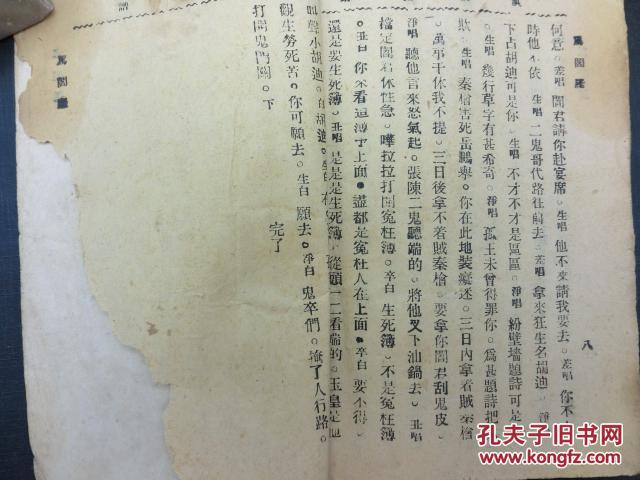 罵閻羅
八
何意。差唱 閻君請你赴宴席。生唱 他不來請我要去。差唱 你不
時他不依 生唱 二鬼哥代路往前去。差唱 拿來狂生名胡迪。淨
下占胡迪可是你。生唱 不才不才是區區。淨唱 紛壁墻題詩可是
。生唱 幾行草字有甚希奇。淨唱 孤王未曾得罪你。爲甚題詩把
欺。生唱 秦檜害死岳鵬舉。你在此地装癡迷。三日內拿着賊秦檜
。萬事干休我不提。三日後拿不着賊秦檜。要拿你閻君刮鬼皮。
淨唱 聽他言來怒氣起。張陳二鬼聽端的。將他叉下油鍋去。丑唱
擋定閻君休性急。嘩拉拉打開冤枉簿。卒白 生死簿。不是冤枉簿
。丑白 你來看這簿子上面。盡都是冤枉人在上面。卒白 要不得。
還是要生死簿。丑唱 是是是生死簿。從頭一二看端的。玉皇是
叫聲小胡迪。白 胡迪。生白 在
觀生勞死苦。你可願去。生白 願去。淨白 鬼卒們。掩了人行路。
打開鬼門關。下
完了
孔夫子旧书网
www.kongfz.com